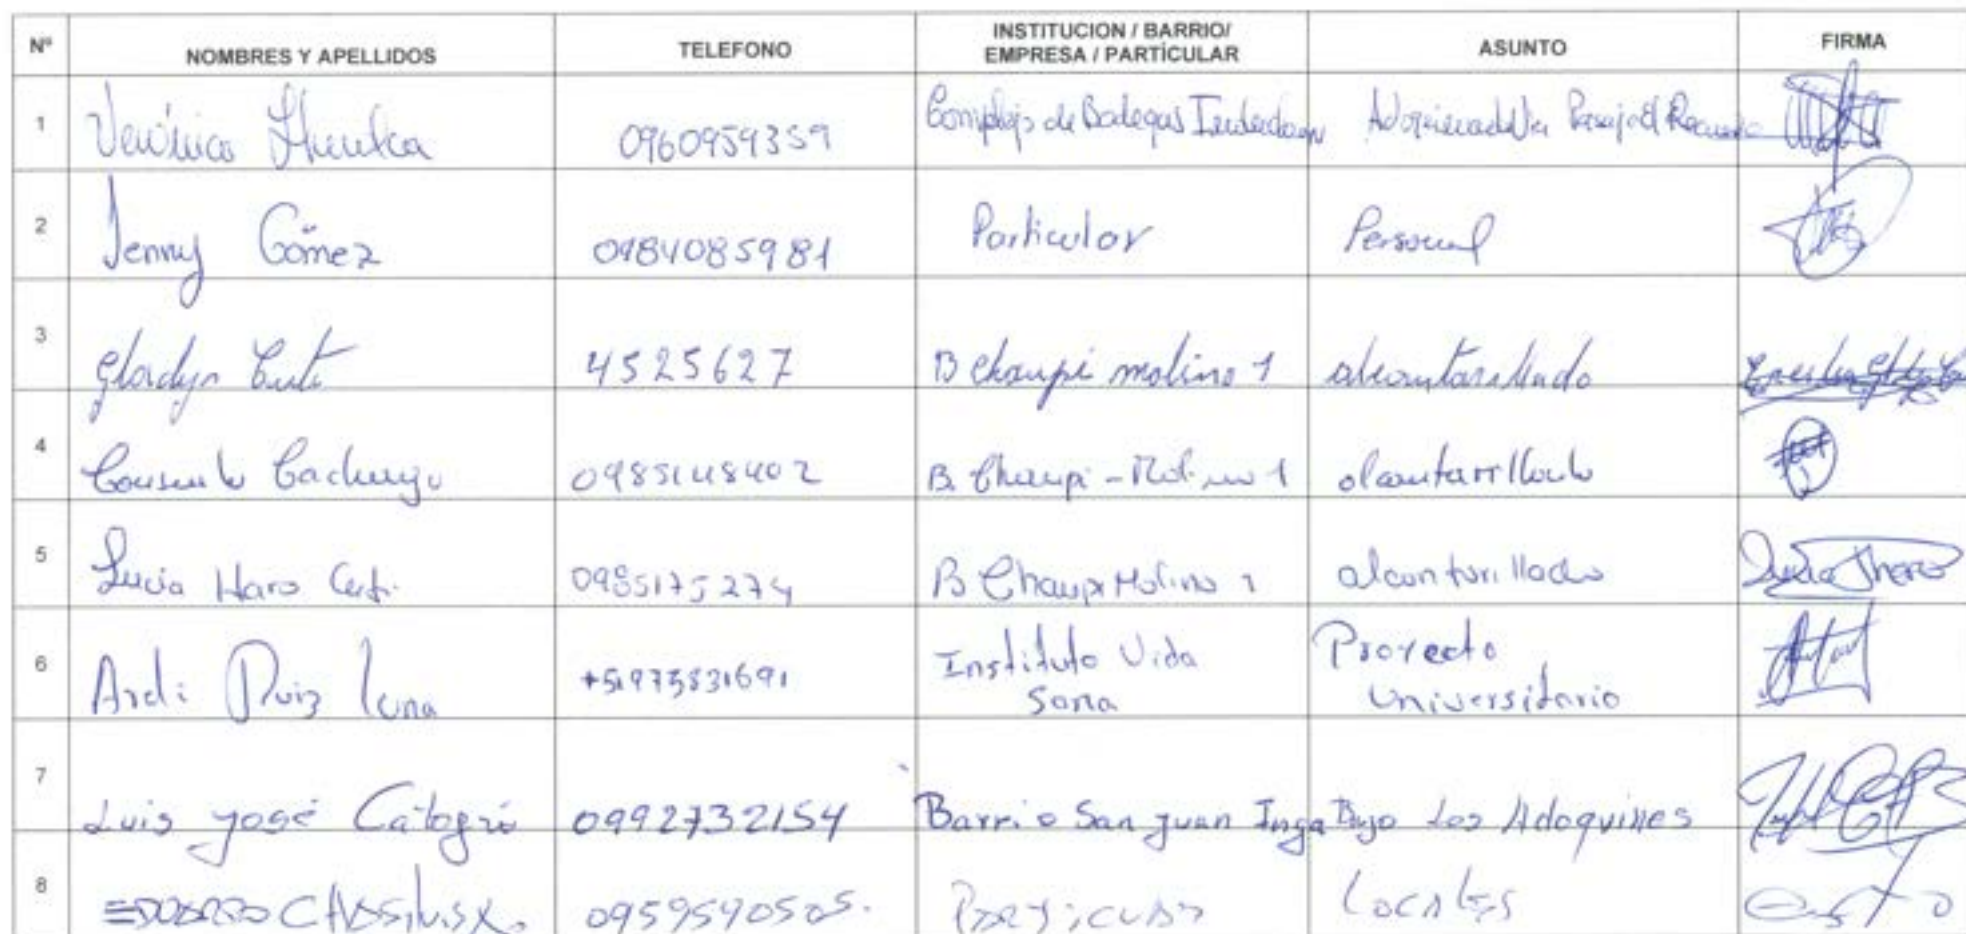 Nº NOMBRES Y APELLIDOS TELEFONO INSTITUCION / BARRIO/ EMPRESA / PARTÍCULAR ASUNTO FIRMA
1 Verónica 0960959359 Complejo de Bodegas
2 Jenny Gómez 0984085981 Particular Personal
3 Gladys 4525627 B Chaupi molino 1 alcantarillado
4 Consuelo 0985148402 B. Chaupi - Molino 1 alcantarillado
5 Lucia Haro 0985175274 B Chaupi Molino 1 alcantarillado
6 Ardi Ruiz Luna +51975831691 Instituto Vida Sana Proyecto Universitario
7 Luis José 0992732154 Barrio San Juan Inga Bajo Los Adoquines
8 0959590505. Particular Locales